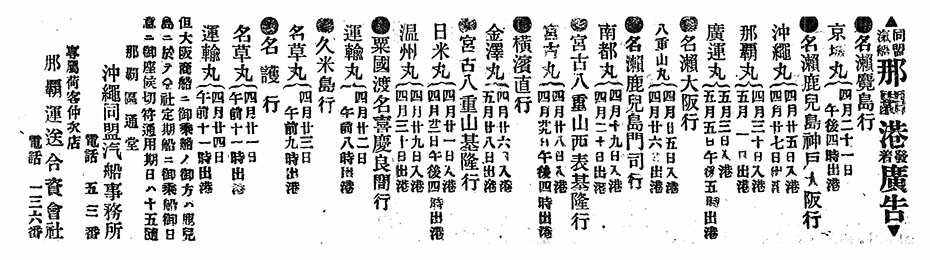 ▲同盟汽船那覇港發着廣告▼
●名瀨鹿兒島行
京城丸 四月二十一日 午後四時出港
●名瀨鹿兒島神戸大阪行
沖繩丸 四月廿六日入港 四月廿七日出港
那覇丸 四月三十日入港 五月一日出港
廣運丸 五月五日午後五時出港
●名瀨大阪行
八重山丸 四月廿五日入港 四月廿六日出港
●名瀨鹿兒島門司行
南都丸 四月十九日入港 四月二十日出港
●宮古八重山西表基隆行
宮古丸 四月廿九日午後四時出港
●橫濱直行
金澤丸 四月廿六日入港 五月廿八日出港
●宮古八重山基隆行
日米丸 四月廿一日入港 四月廿三日午後四時出港
温州丸 四月廿九日入港 四月三十日出港
●粟國渡名喜慶良間行
運輸丸 四月廿二日 午前八時出港
●久米島行
名草丸 四月廿三日 午前九時出港
●名護行
名草丸 四月廿一日 午前十一時出港
運輸丸 四月廿四日 午前十一時出港
但大阪商船ニ御乘船ノ御方ハ鹿兒
島ニ於テ仝社定期船ニ御乘船御日
意ニ御座候切符通用期日ハ十五日
那覇區通堂
沖繩同盟汽船事務所
電話 五三番
專屬荷客仲次店
那覇運送合資會社
電話 一三六番